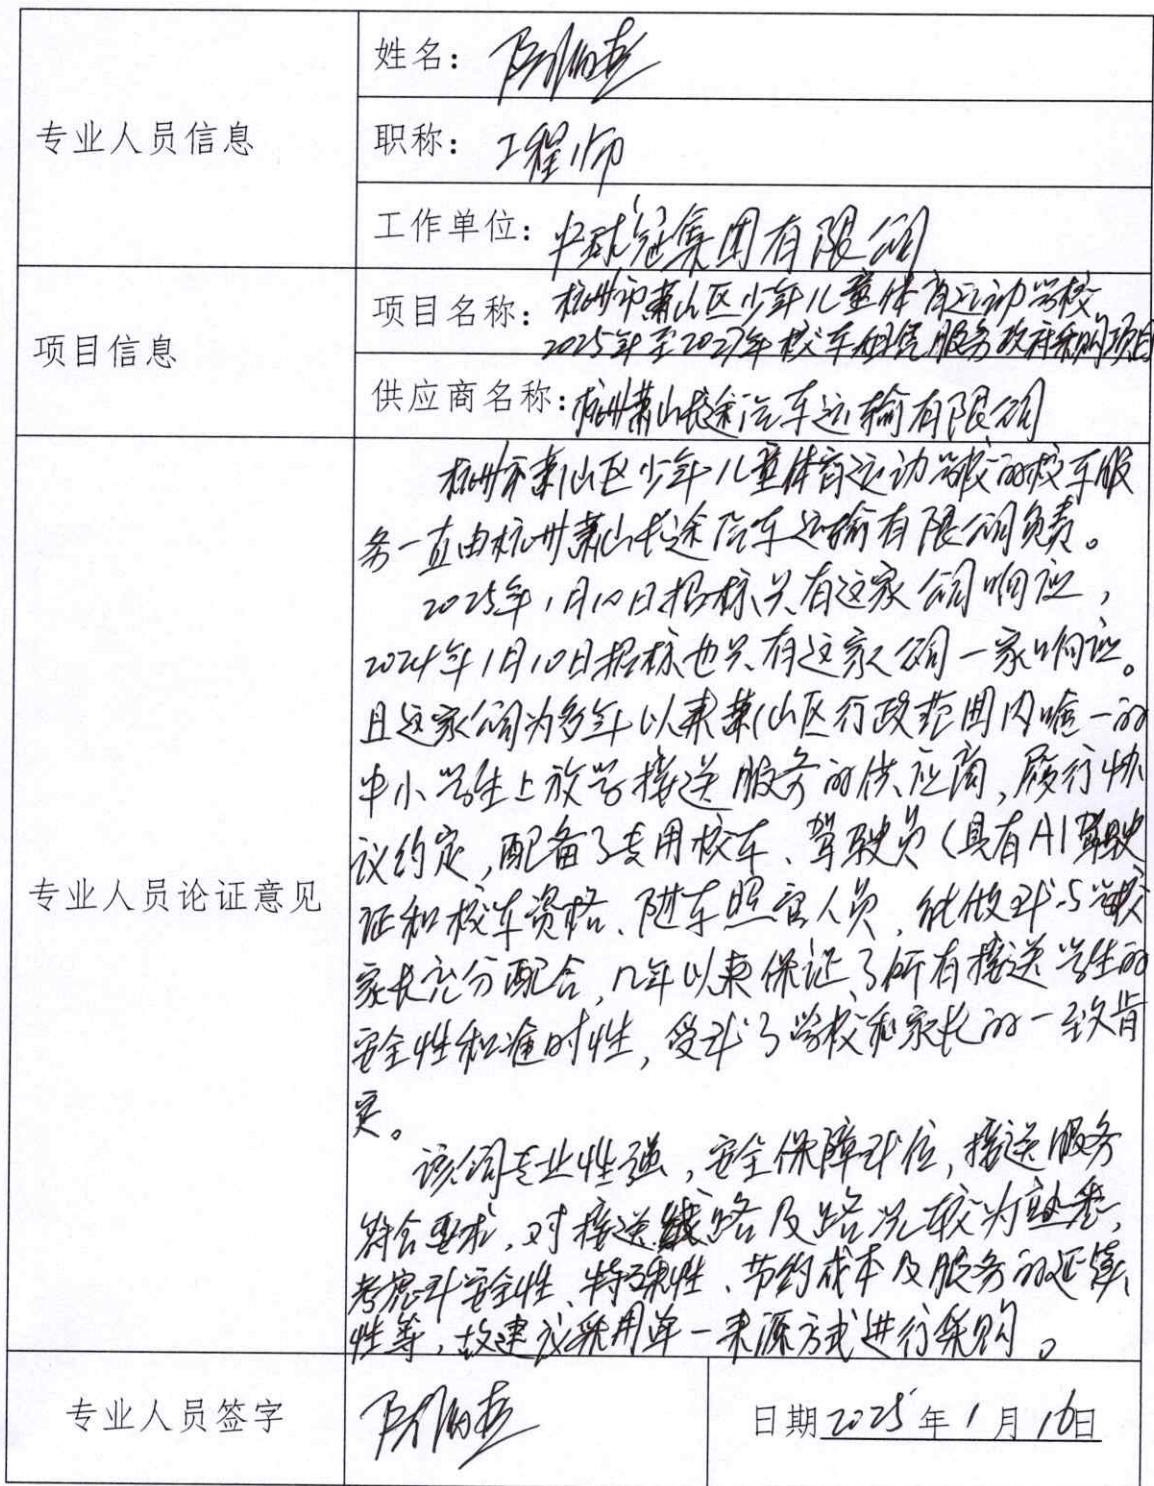 专业人员信息
姓名：
职称：工程师
工作单位：中冠集团有限公司
项目信息
项目名称：杭州市萧山区少年儿童体育运动学校
2025年至2027年校车租赁服务政府采购项目
供应商名称：杭州萧山长途汽车运输有限公司
专业人员论证意见
杭州市萧山区少年儿童体育运动学校的校车服
务一直由杭州萧山长途汽车运输有限公司负责。
2025年1月10日招标只有这家公司响应，
2024年1月10日招标也只有这家公司一家响应。
且这家公司为多年以来萧山区行政范围内唯一的
中小学生上放学接送服务的供应商，履行协
议约定，配备了专用校车、驾驶员（具有A1驾驶
证和校车资格、随车照官人员，能做到与学校
家长充分配合，几年以来保证了所有接送学生的
安全性和准时性，受到了学校和家长的一致肯
定。
该公司专业性强，安全保障到位，接送服务
符合要求，对接送线路及路况较为熟悉，
考虑到安全性、特殊性、节约成本及服务的延续
性等，故建议采用单一来源方式进行采购。
专业人员签字
日期2025年1月16日